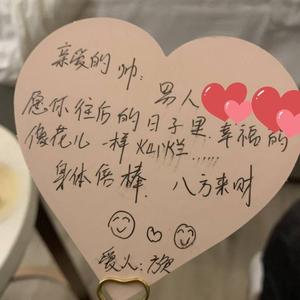 亲爱的帅:男人
愿你往后的日子里幸福的
像花儿一样灿烂……
身体倍棒、八方来财
爱人: